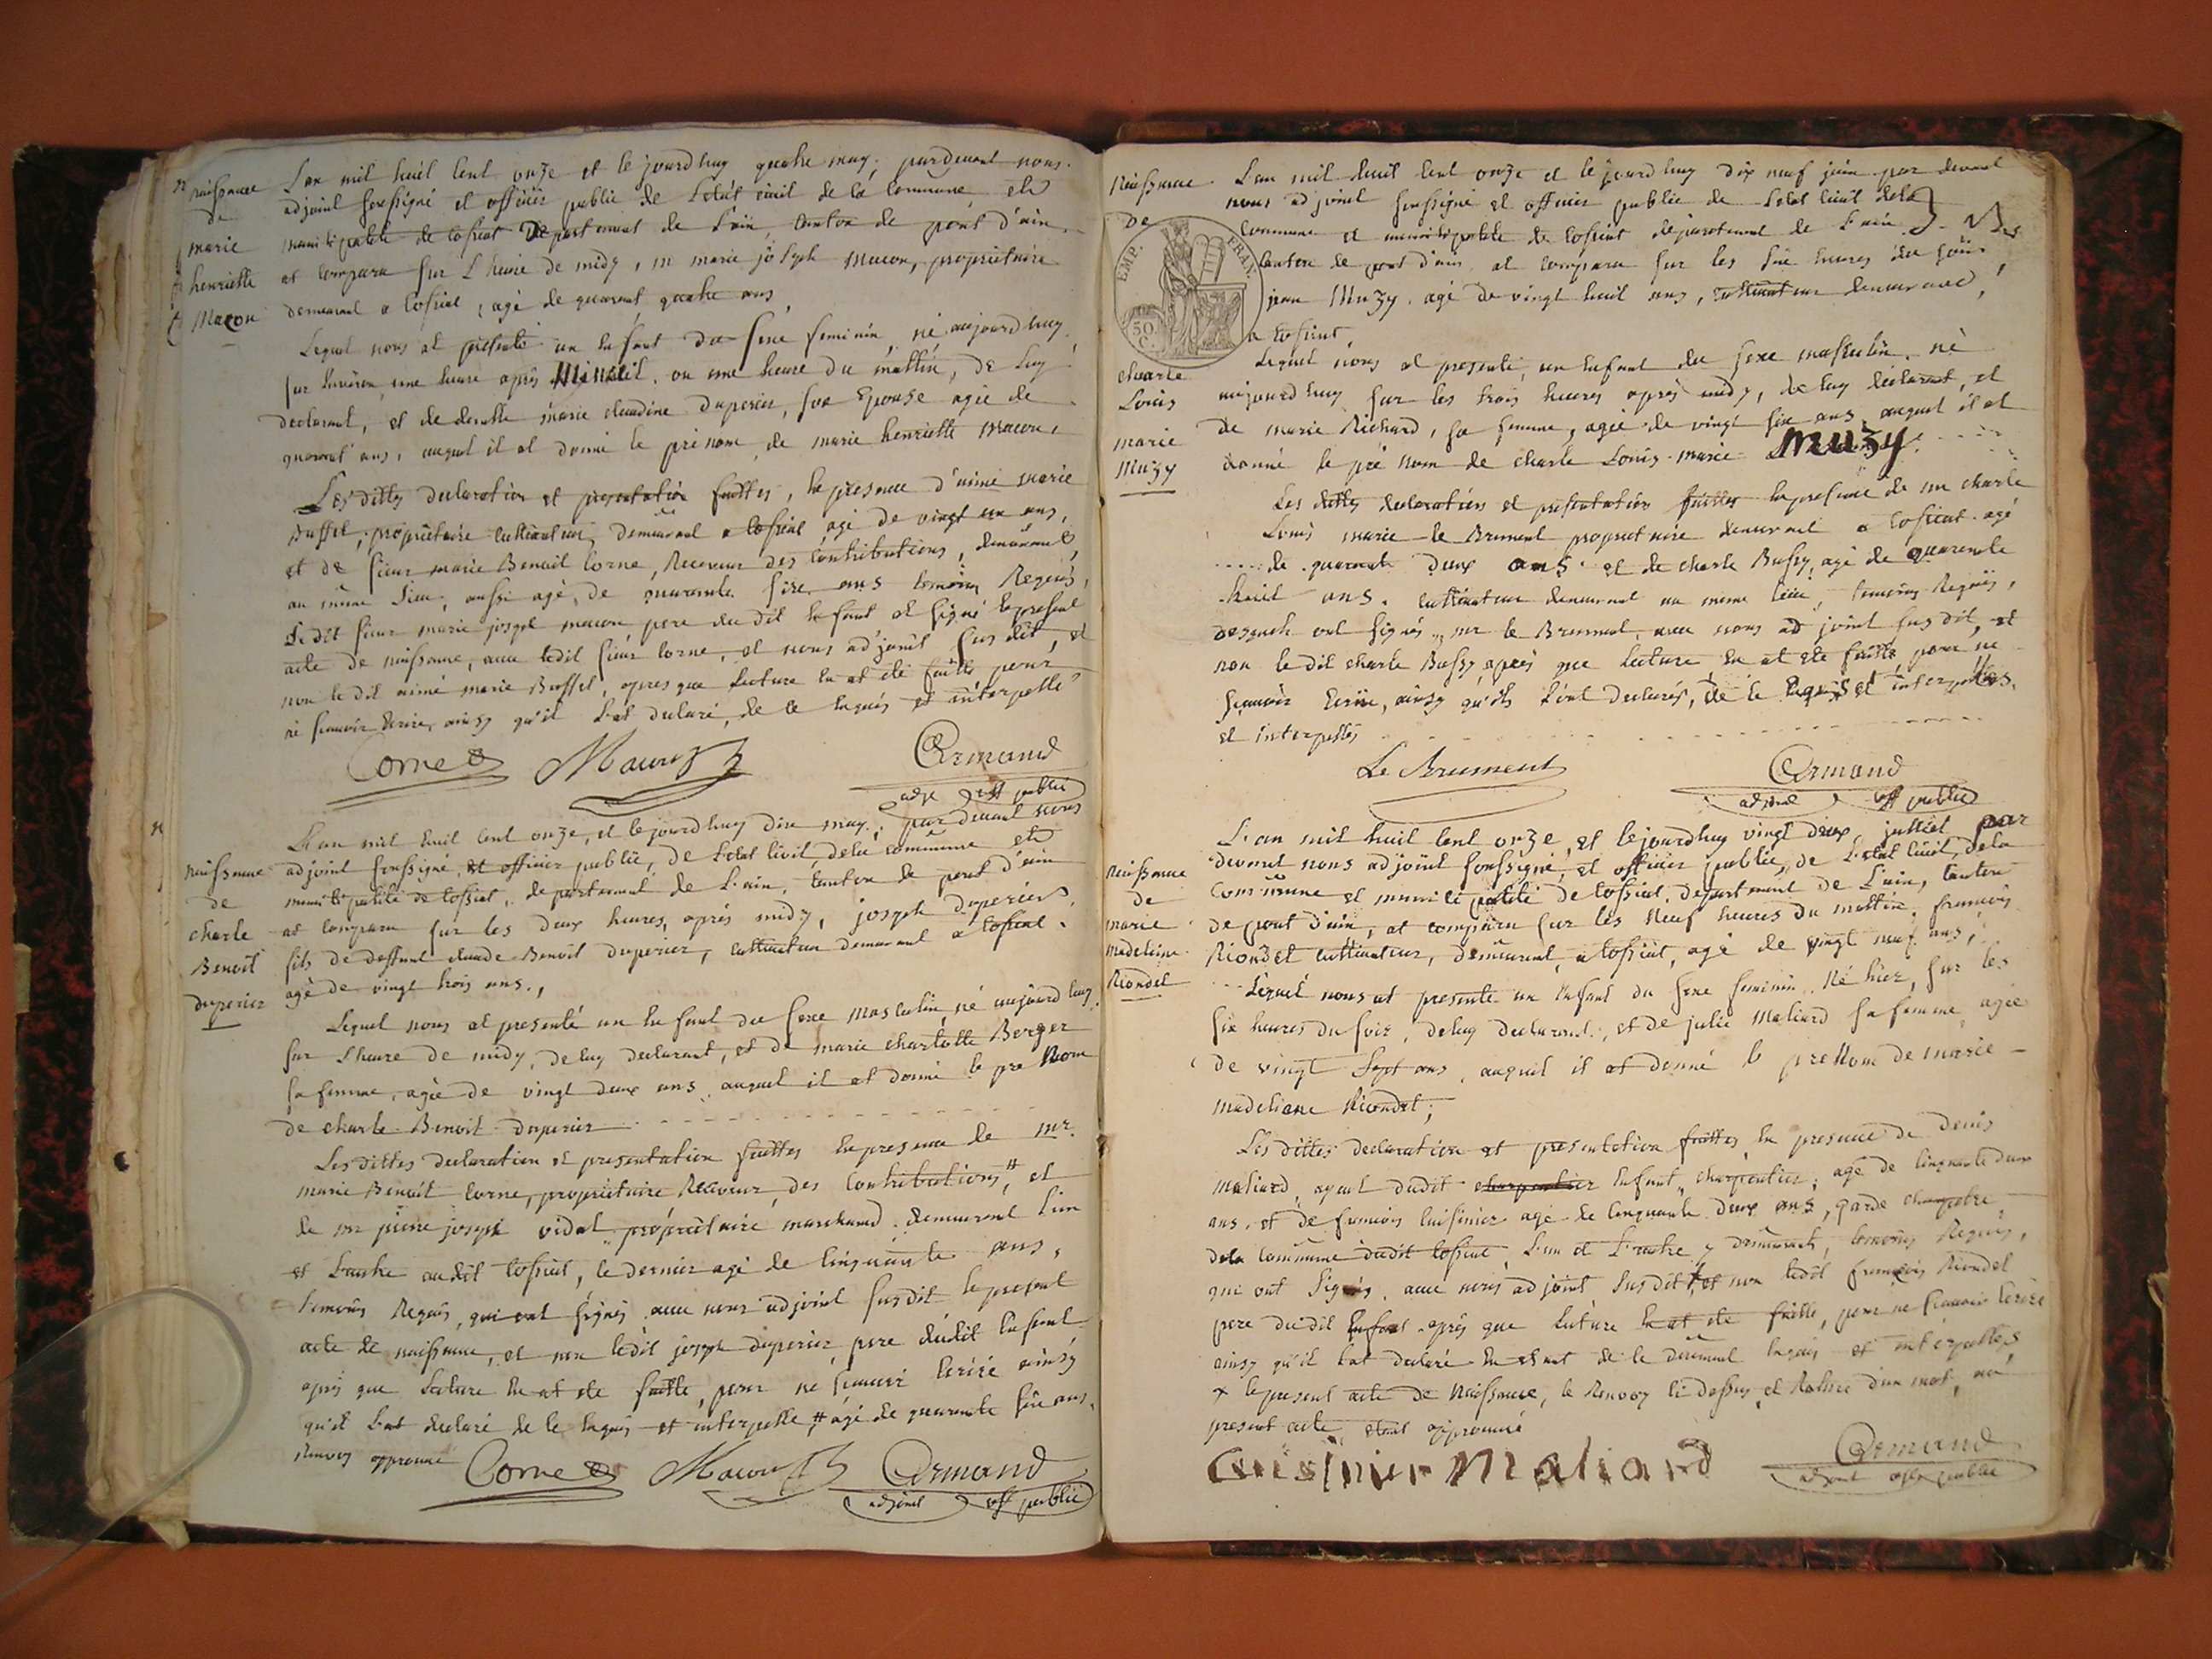 naissance
de
marie
henriette
Macon
L'an mil huit cent onze et le jourd'huy quatre may, pardevant nous
adjoint soussigné et officier public de l'etat civil de la commune et
municipalité de tossiat Departement de l'ain, canton de pont d'ain
at comparu sur L'heure de midy, mr marie joseph Macon, proprietaire
demeurant a tossiat, agé de quarante quatre ans
Lequel nous at presenté un enfant du sexe feminin, né aujourd'huy
sur environ une heure après Minuit, ou une heure du mattin, de luy
declarant, et de demlle marie claudine duperier, son Epouse agée de
quarant ans, auquel il at donné le prénom de marie henriette Macon,
Les dittes declaration et presentation faittes, en presence d'aimé marie
Buffet, propriétaire cultivateur, demeurant a tossiat agé de vingt un ans,
et de sieur marie Benoit Corne, Receveur des Contributions, demeurant
au même Lieu, aussi agé, de quarante sixe ans temoins Requis,
Le dit sieur marie joseph macon pere du dit enfant at signé le present
acte de naissance, avec ledit sieur Corne, et nous adjoint sus dit, et
non le dit aimé marie Buffet, apres que lecture en at été faitte pour
ne scavoir écrire, ainsy qu'il L'at declaré, de ce enquis et interpellé
Corne Macon Armand
adjt off public
naissance
de
charle
Benoit
duperier
L'an mil huit cent onze, et le jourd'huy dix may, par devant nous
adjoint soussigné, et officier public, de l'etat civil, de la commune et
municipalité de tossiat, departement de L'ain, canton de pont d'ain
at comparu sur les deux heures, après midy, joseph duperier,
fils de deffunt claude Benoit duperier, cultivateur demeurant a tossiat,
agé de vingt trois ans,
Lequel nous at presenté un enfant du sexe masculin, né aujourd'huy
sur L'heure de midy, de luy declarant, et de marie charlotte Berger
sa femme, agée de vingt deux ans, auquel il at donné le pré Nom
de charle Benoit duperier
Les dittes declaration et presentation faittes en presence de mr
marie Benoit Corne, proprietaire Receveur des Contributions,# et
de mr pierre joseph vidal propriétaire marchand demeurant l'un
et L'autre audit tossiat, le dernier agé de cinquante ans,
temoins Requis, qui ont signés avec nous adjoint susdit le present
acte de naissance, et non ledit joseph duperier pere dudit enfant
après que lecture en at été faitte, pour ne scavoir écrire ainsy
qu'il L'at declaré de ce enquis et interpellé # agé de quarante six ans,
Renvoy approuvé
Corne Macon Armand
adjoint off public
Naissance
de
charle
Louis
marie
Muzy
L'an mil huit cent onze et le jourd'huy dix neuf juin par devant
nous adjoint soussigné et officier public de l'etat civil de la
Commune et municipalité de tossiat departement de L'ain
canton de pont d'ain at comparu sur les six heures du soir
jean Muzy, agé de vingt huit ans, cultivateur demeurant,
a tossiat,
Lequel nous at presenté, un enfant du sexe masculin, né
aujourd'huy sur les trois heures après midy, de luy déclarant, et
de marie Richard, sa femme, agée de vingt six ans, auquel il at
donné le pré nom de charle Louis marie Muzy
Les dittes declaration et presentation faittes en presence de mr charle
Louis marie le Brument proprietaire demeurant a tossiat agé
de quarante Deux ans et de charle Bussy, agé de quarante
huit ans, cultivateur demeurant au meme lieu, temoins Requis,
desquels ont signés, mr le Brument, avec nous adjoint susdit, et
non le dit charle Bussy, après que lecture en at été faitte, pour ne
scavoir écrire, ainsy qu'ils L'ont declarés, de ce enquis et interpellés,
et interpellés
Le Brument Armand
adjoint off public
Naissance
de
marie
Madeleine
Riondet
L'an mil huit cent onze, et le jourd'huy vingt deux juillet par
devant nous adjoint soussigné, et officier public, de L'etat civil, de la
Commune et municipalité de tossiat, departement de L'ain, canton
de pont d'ain, at comparu sur les Neuf heures du mattin, francois
Riondet cultivateur, demeurant, a tossiat, agé de vingt neuf ans,
Lequel nous at presenté un enfant du sexe feminin Né hier, sur les
six heures du soir, de luy declarant, et de julie Maliard sa femme agée
de vingt Sept ans, auquel il at donné le preNom de marie
madeliane Riondet,
Les dittes declaration et presentation faittes, en presence de Denis
Maliard, ayeul dudit charpentier enfant, charpentier, agé de cinquante deux
ans, et de francois Cuisinier agé de cinquante deux ans, garde champetre
de la Commune dudit tossiat, L'un et L'autre y demeurants, temoins Requis,
qui ont signés, avec nous adjoint susdit, et non ledit francois Riondet
pere dudit Enfant après que lecture en at été faitte, pour ne scavoir écrire
ainsy qu'il L'at declaré en etant de ce duement enquis et interpellés
x le present acte de Naissance, le Renvoy ci dessus, et Rature d'un mot, au
present acte, etant approuvé
Cuisinier Maliard Armand
adjoint off public
EMP. FRAN.
50 C.